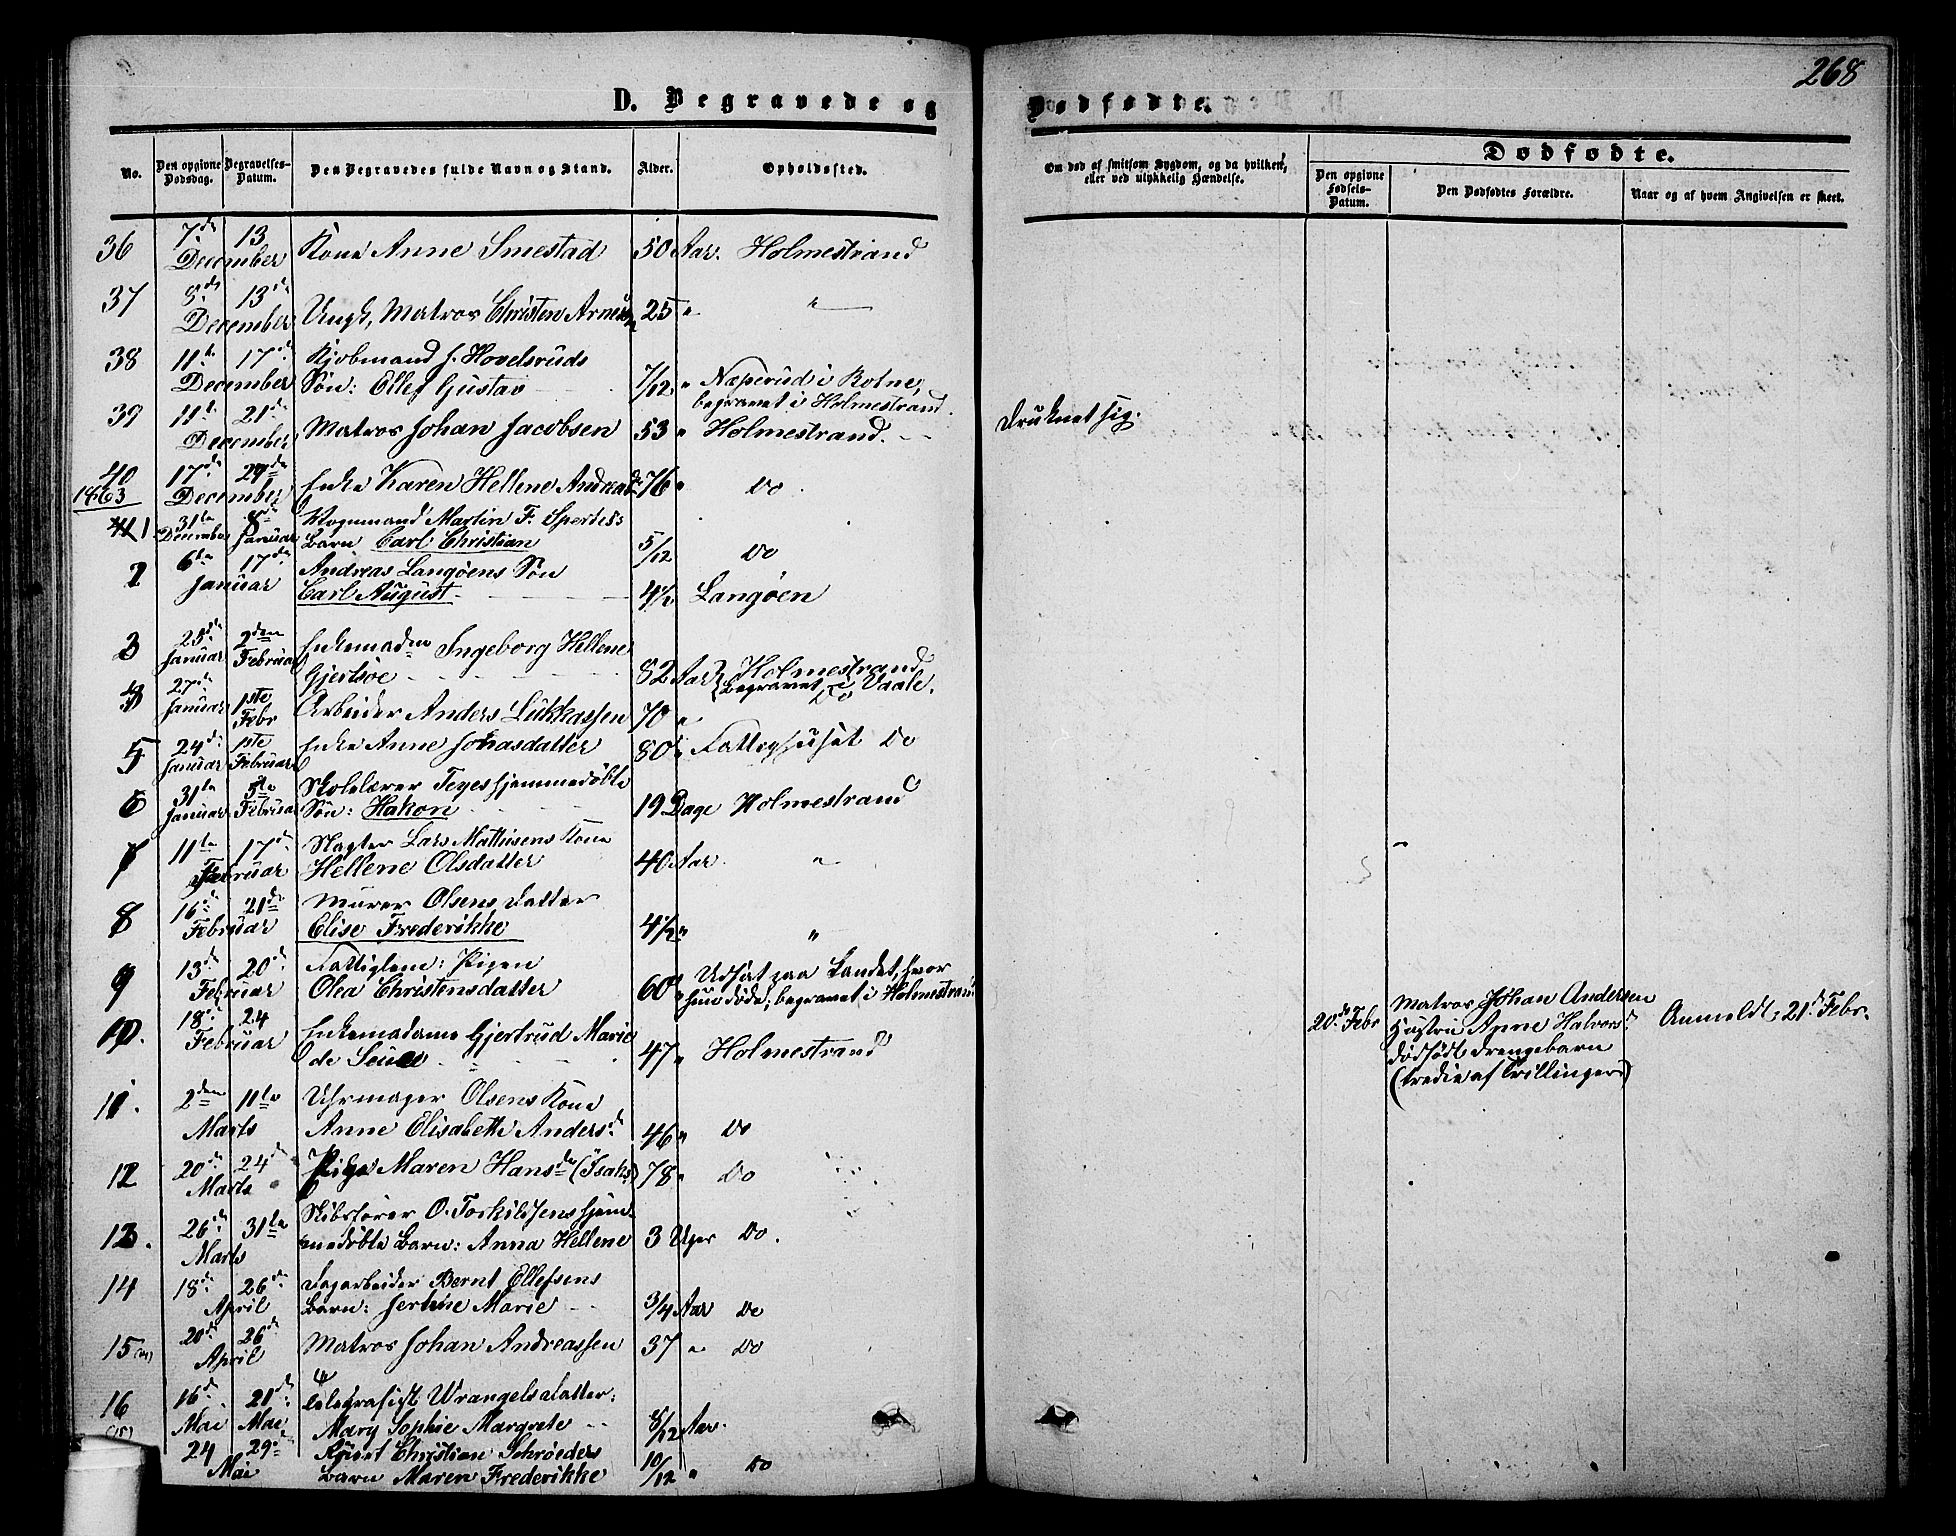 268
D. Begravede og Dødfødte.
No.
Den opgivne Dødsdag.
Begravelses-Datum.
Den Begravedes fulde Navn og Stand.
Alder.
Opholdssted.
Om død af smitsom Sygdom, og da hvilken, eller ved ulykkelig Hændelse.
Dødfødte.
Den opgivne Fødsels-Datum.
Den Dødfødtes Forældre.
Naar og af hvem Angivelsen er skeet.
36 7de 13 December Kone Anne Smestad 50 Aar. Holmestrand
37 8de 13de December Ungk, Matros Christen Arnesen 25 " "
38 11te 17de December Kjøbmand J. Hovelsruds
Søn: Ellef Gustav 7/12 " Næperud i Botne, begravet i Holmestrand.
39 11te 21de December Matros Johan Jacobsen 53 " Holmestrand. Druknet sig.
40 17de 29de December Enke Karen Hellene Andreasd. 76 " Do.
1863
1 31te December 8de Januar Vognmand Martin F. Sperless
Barn Carl Christian 5/12 Do
2 6te 17de Januar Andreas Langøens Søn
Carl August 4 1/2 Langøen
3 25de Januar 2den Februar Enkemaden Ingeborg Hellene
Gjertsøe 82 Aar Holmestrand begravet i Vaale.
27de Januar 1ste Febr Arbeider Anders Lukkassen 70 " Do
5 24de Januar 1ste Februar Enke Anne Johasdatter 80 " Fattighuset Do
6 31te Januar 5te Februar Skolelærer Teges hjemmedøbte
Søn: Hakon 19 Dage Holmestrand
7 11te 17de Februar Slagter Lars Mathisens Kone
Hellene Olsdatter 40 Aar "
8 16de 21de Februar Murer Olsens Datter
Elise Frederikke 4 1/2 " "
9 13de 20de Februar Fattiglem: Pigen
Olea Christensdatter 60 " Udsat paa Landet, hvor
hun døde; begravet i Holmestrand
10. 18de 24 Februar Enkemadame Gjertrud Marie
de Seue 47 " Holmestrand
20de Febr Matros Johan Andersen
Hustru Anne Halvorsd.
dødfødt Drengebarn
(tredie af Trillinger)
Anmeldt, 21de Febr.
11. 2den 11te Marts Uhrmager Olsens Kone
Anne Elisabeth Andersd. 46 " Do
12 20de 24de Marts Pige Maren Hansda (Isaks) 78 " Do
13. 26de 31te Marts Skibsfører O. Torkildsens hjem-
medøbte Barn: Anna Hellene 3 Uger Do.
14 18de 26de April Dagarbeider Bernt Ellefsens
Barn: Jerline Marie 3/4 Aar Do
15 (14) 20de 26de April Matros Johan Andreassen 37 " Do
16 (15) 16de Mai 21de Mai Telegrafist Wrangels Datter:
Mary Sophie Margrete 8/12 Aar.
24 29de Mai Christian Schrøeders
Barn Maren Frederikke 10/12 " Do